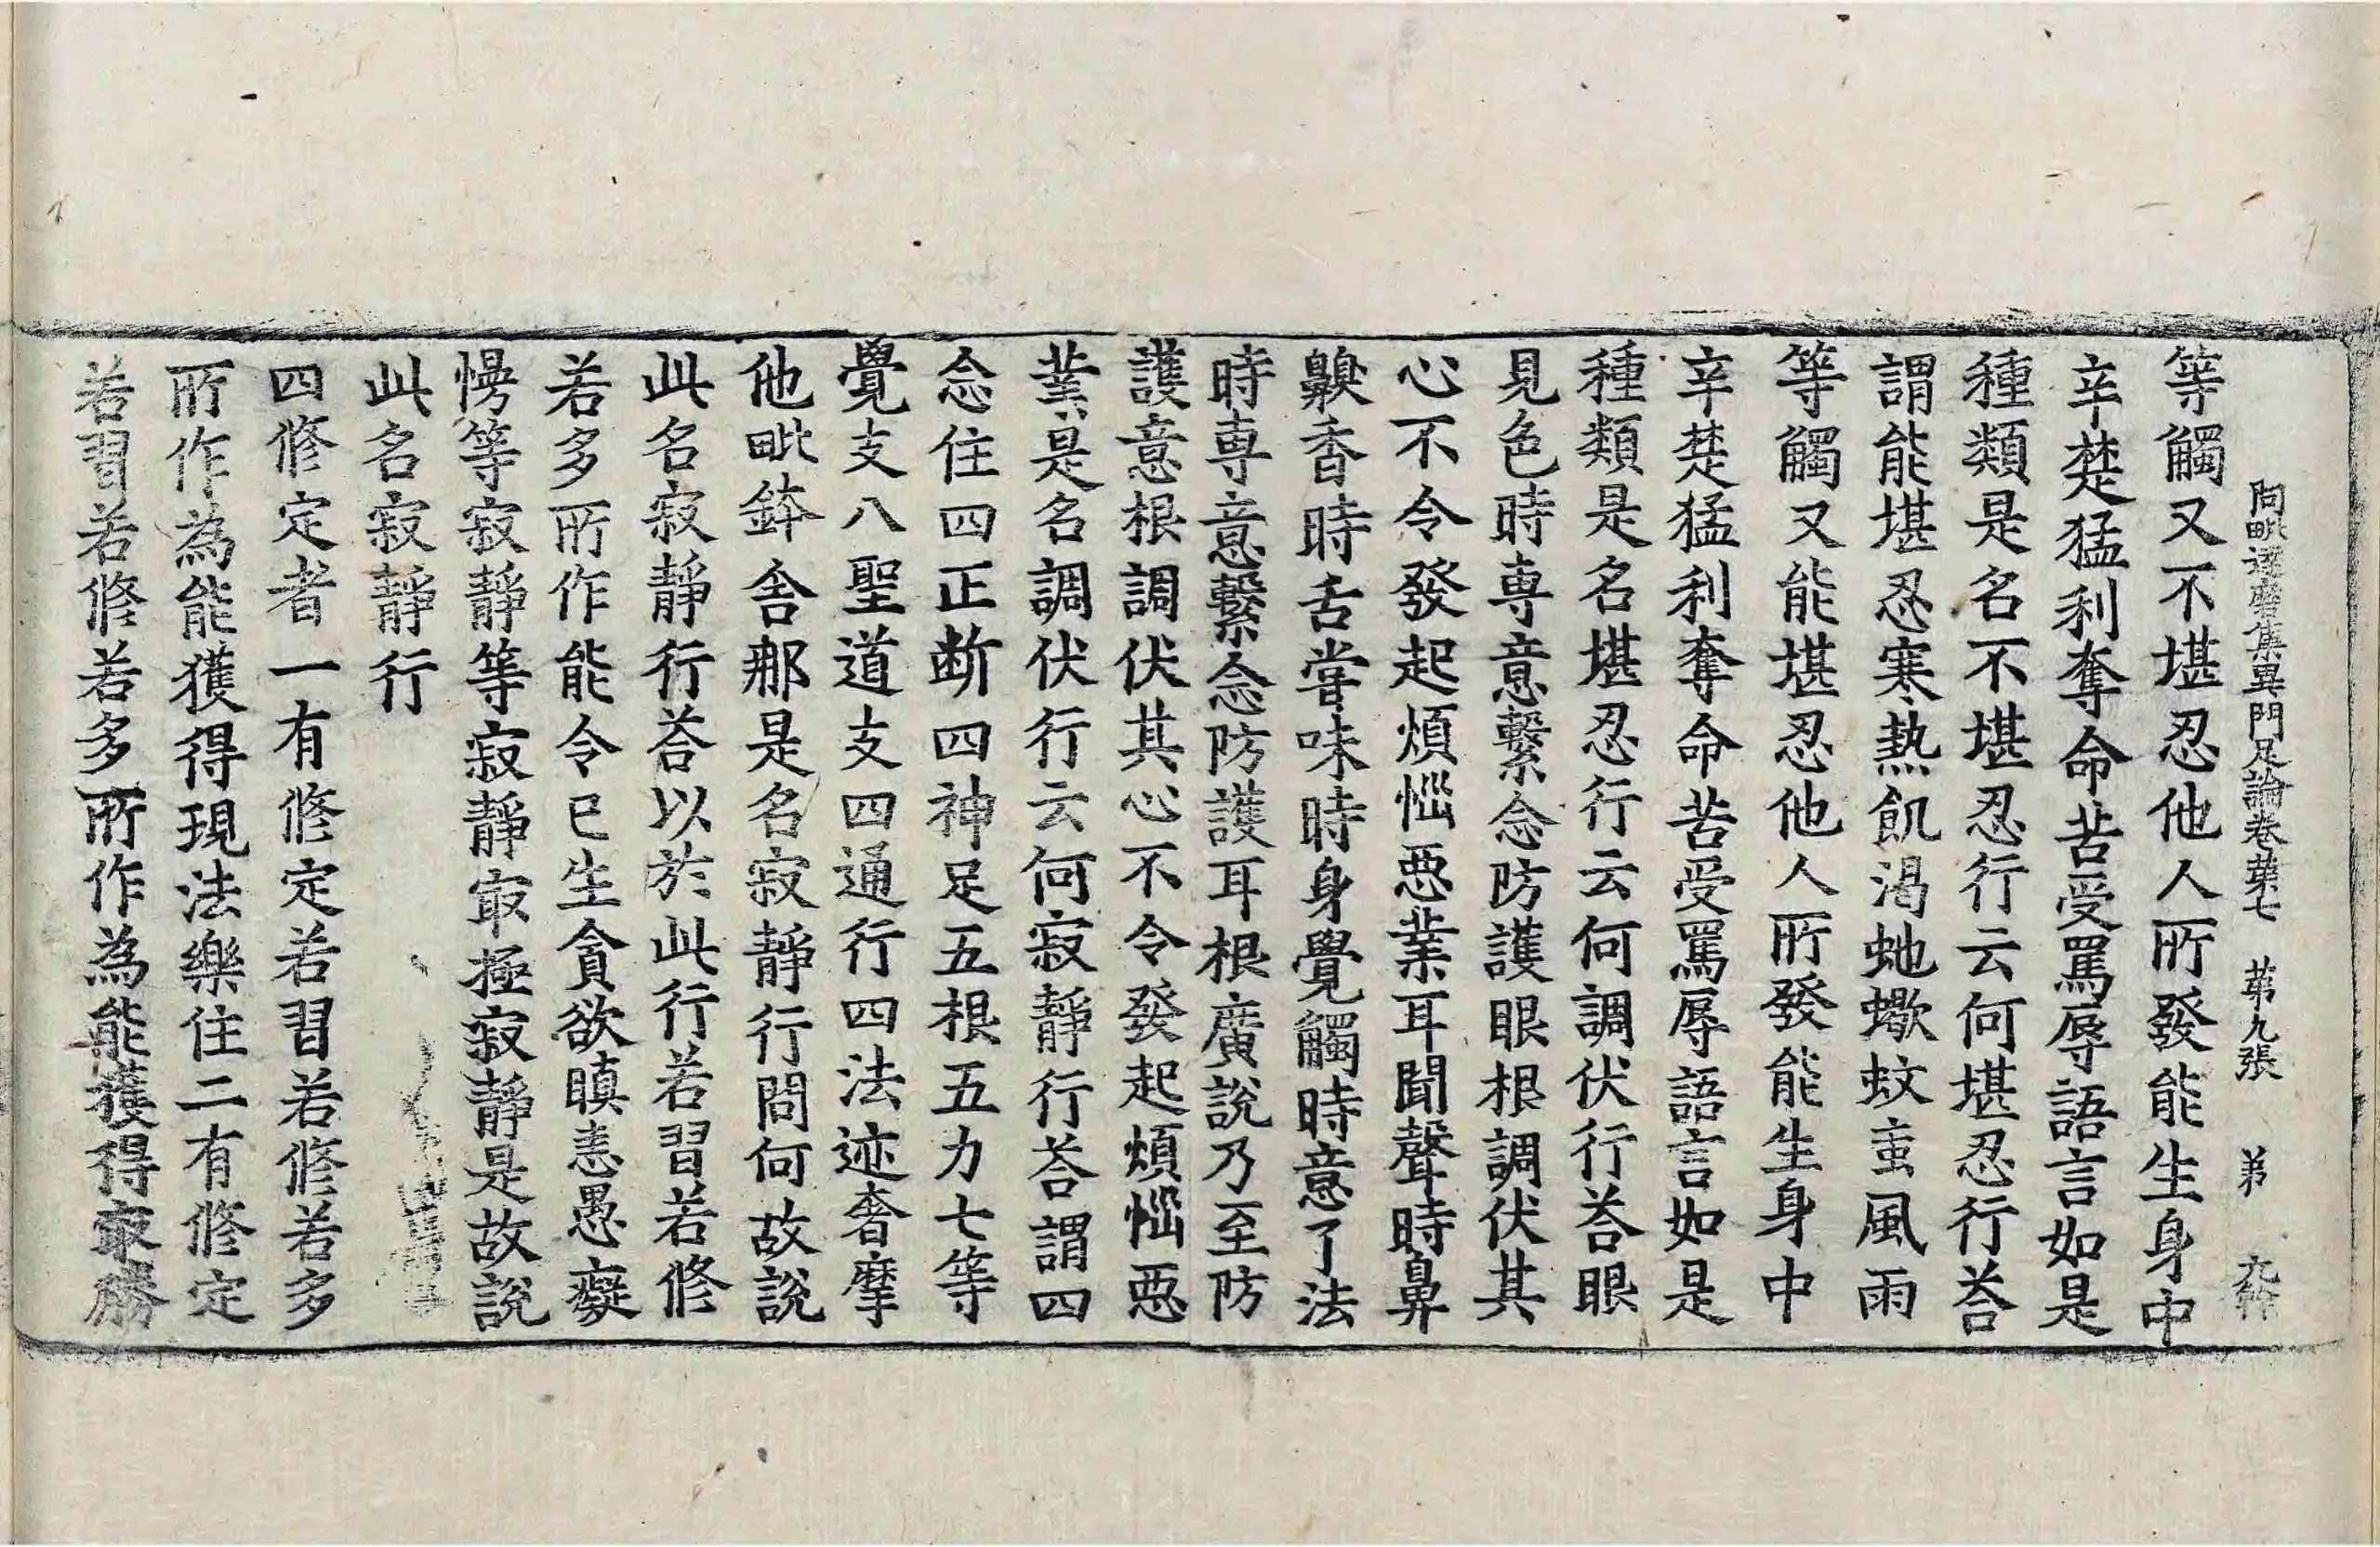 阿毗達磨集異門足論卷苐七 苐九張 弟
等觸又不堪忍他人所發能生身中
辛楚猛利奪命苦受罵辱語言如是
種類是名不堪忍行云何堪忍行荅
謂能堪忍寒熱飢渴虵蠍蚊䖟風雨
等觸又能堪忍他人所發能生身中
辛楚猛利奪命苦受罵辱語言如是
種類是名堪忍行云何調伏行荅眼
見色時專意繫念防護眼根調伏其
心不令發起煩惱惡業耳聞聲時鼻
齅香時舌嘗味時身覺觸時意了法
時專意繫念防護耳根廣說乃至防
護意根調伏其心不令發起煩惱惡
業是名調伏行云何寂靜行荅謂四
念住四正断四神足五根五力七等
覺支八聖道支四通行四法迹奢摩
他毗鉢舍那是名寂靜行問何故說
此名寂靜行荅以於此行若習若修
若多所作能令已生貪欲瞋恚愚癡
慢等寂靜等寂靜㝡極寂靜是故說
此名寂靜行
四修定者一有修定若習若修若多
所作為能獲得現法樂住二有修定
若習若修若多所作為能獲得㝡勝